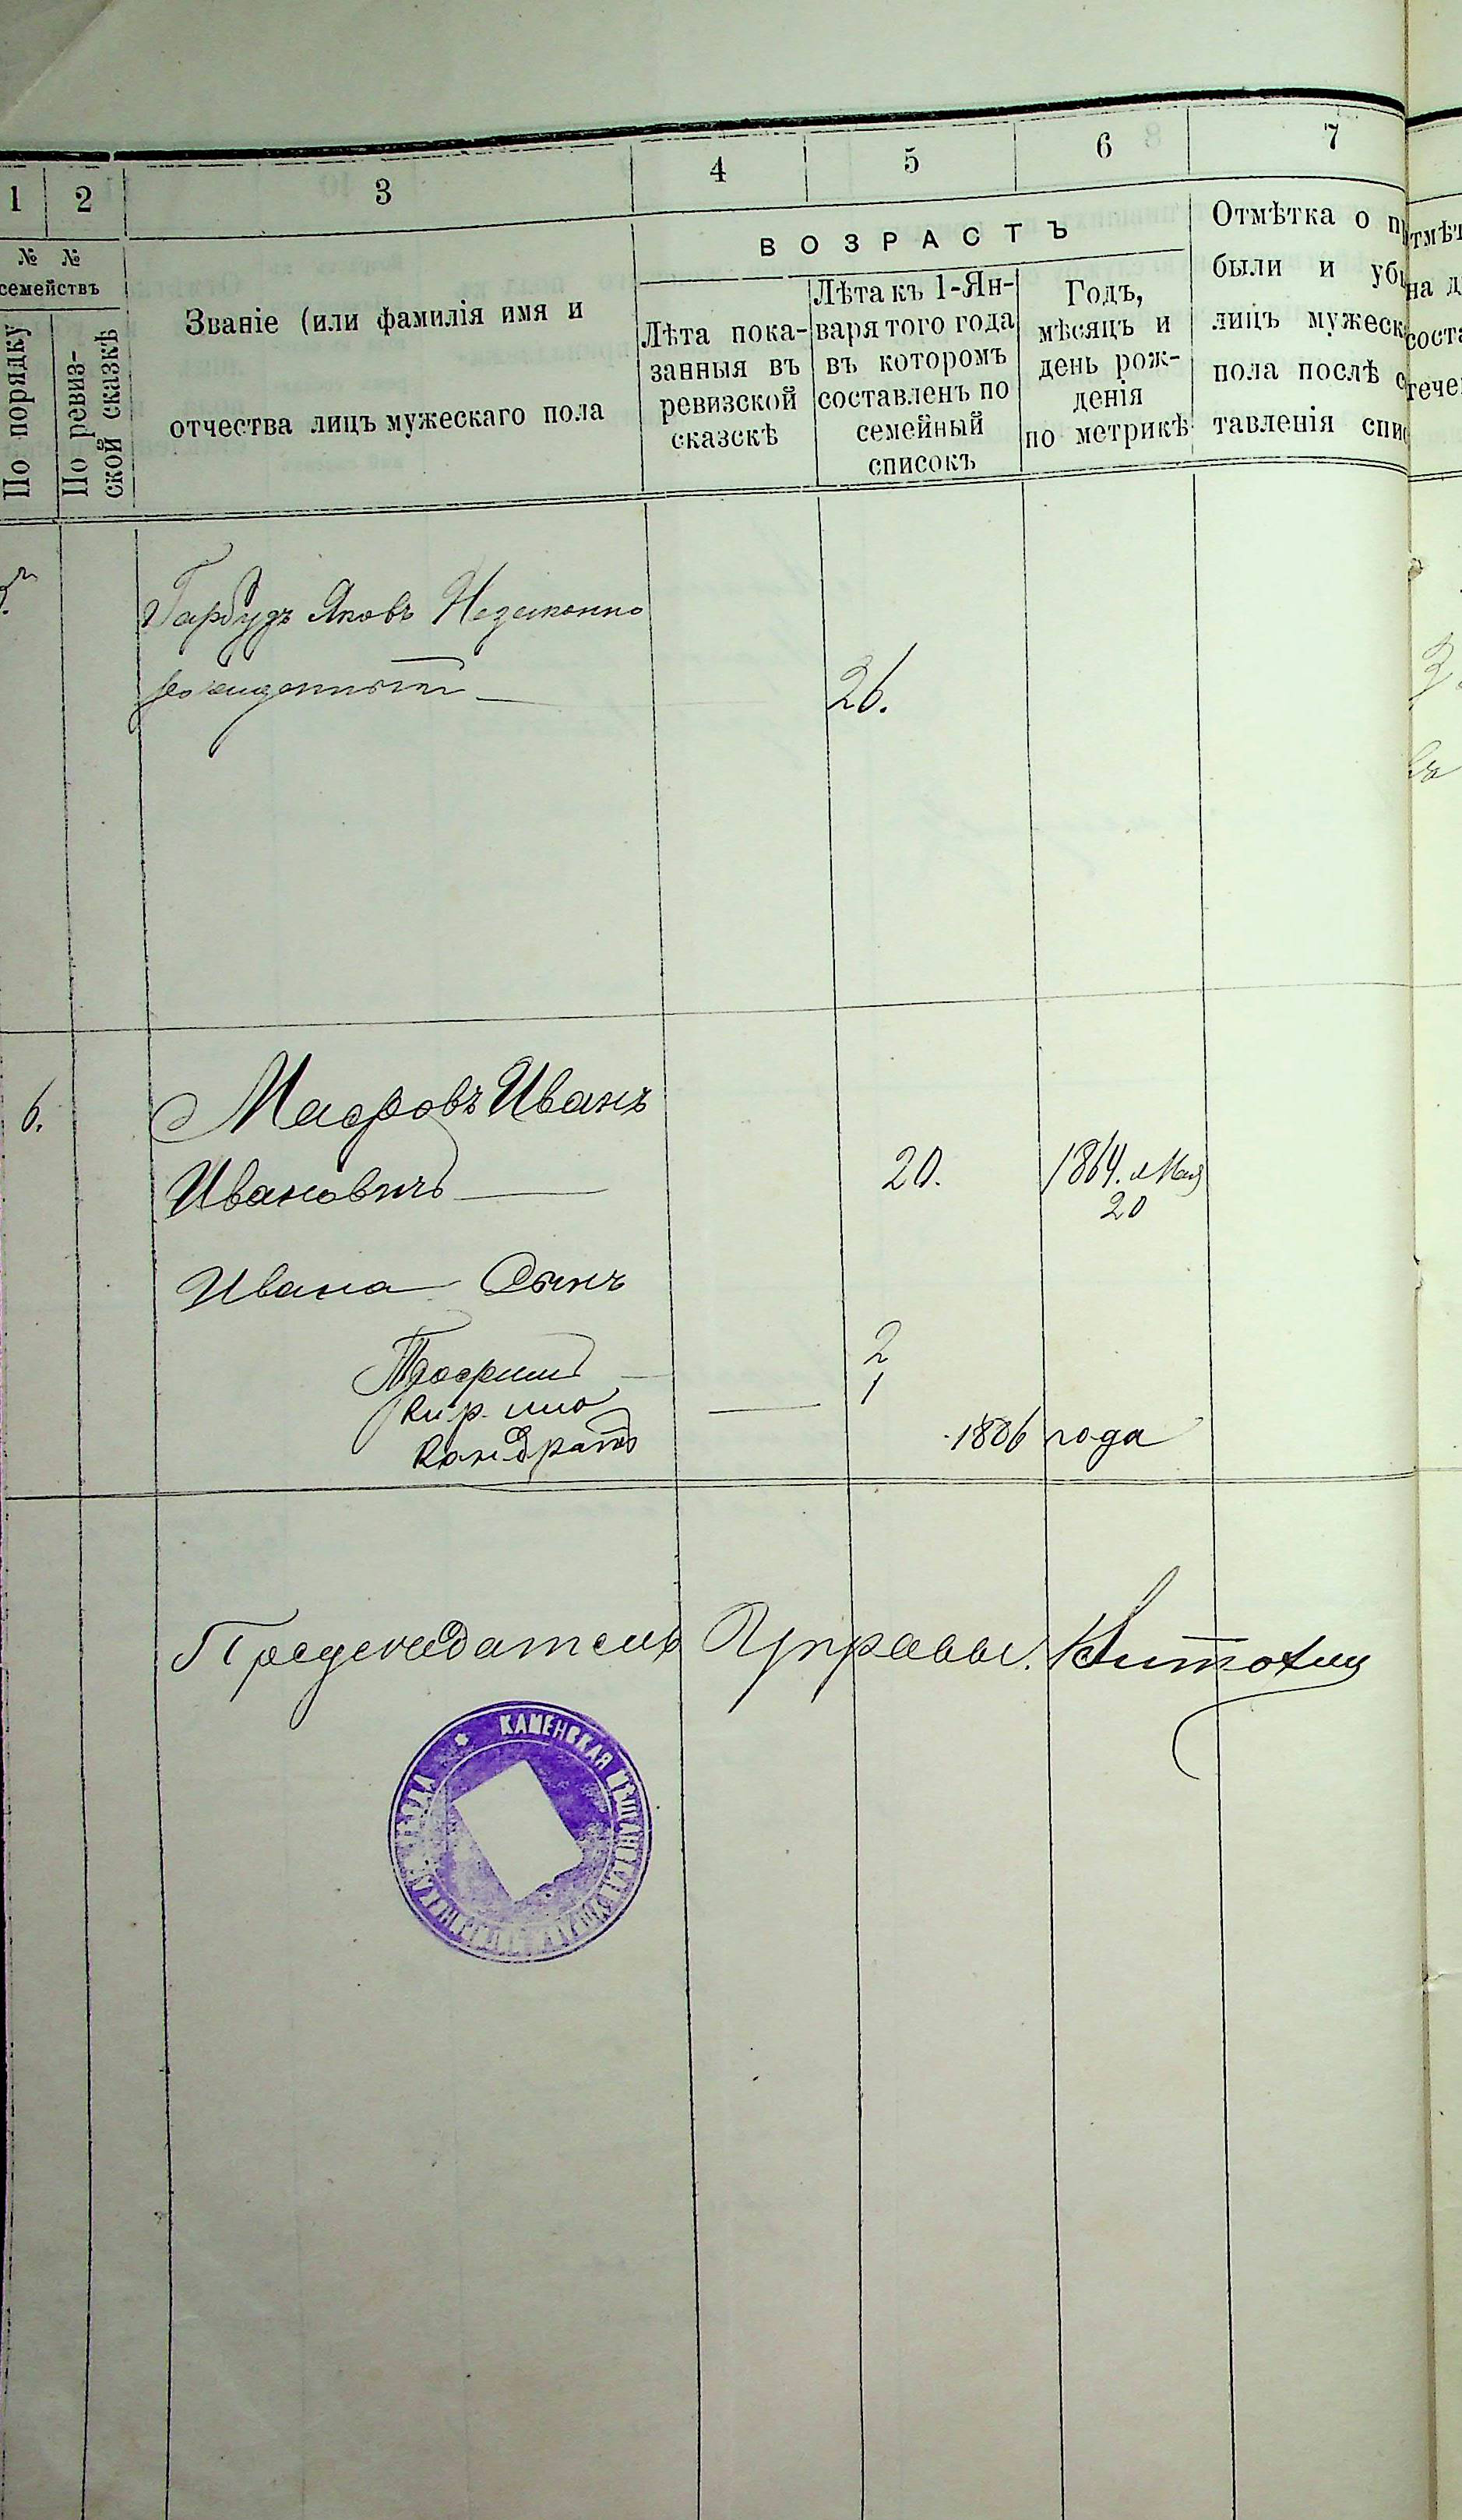 1 2 3 4 5 6 7
№ № семействъ
По порядку
По ревиз-
ской сказкѣ
Званіе (или фамилія имя и
отчества лицъ мужескаго пола
ВОЗРАСТЪ
Лѣта пока-
занныя въ
ревизской
сказскѣ
Лѣта къ 1-Ян-
варя того года
въ которомъ
составленъ по
семейный
списокъ
Годъ,
мѣсяцъ и
день рож-
денія
по метрикѣ
Отмѣтка о
были и
лицъ мужеск
пола послѣ
тавленія
Гарбузъ Яковъ Незаконно
рожденный 26.
6. Иванъ
Ивановичъ 20. 1864. Мая
20
Ивана Сынъ
2
1
Кондратъ 1886 года
Предсѣдатель Управы.
КАМЕНСКАЯ МѢЩАНСКАЯ УПРАВА